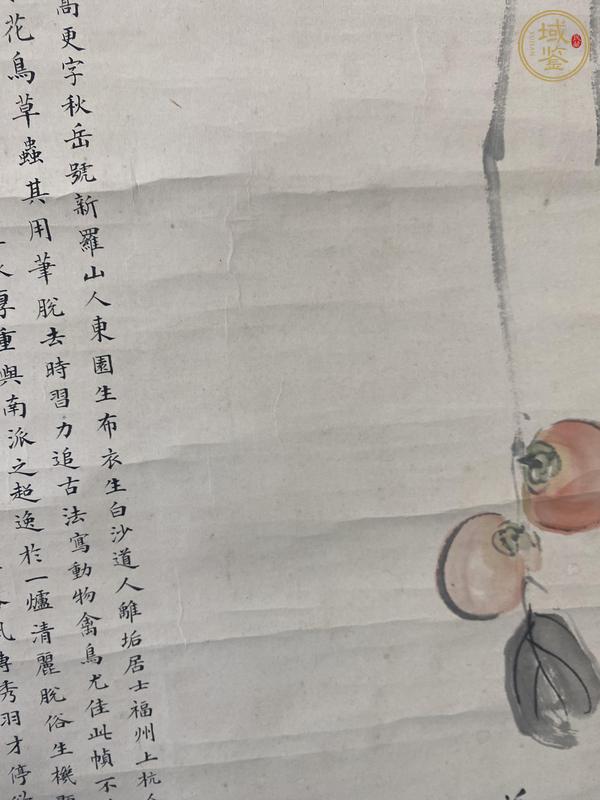 更字秋岳號新羅山人東園生布衣生白沙道人離垢居士福州上杭
花鳥草蟲其用筆脫去時習力追古法寫動物禽鳥尤佳此幀不
厚重與南派之超逸於一爐清麗脫俗生機
秀羽才停
域鑒